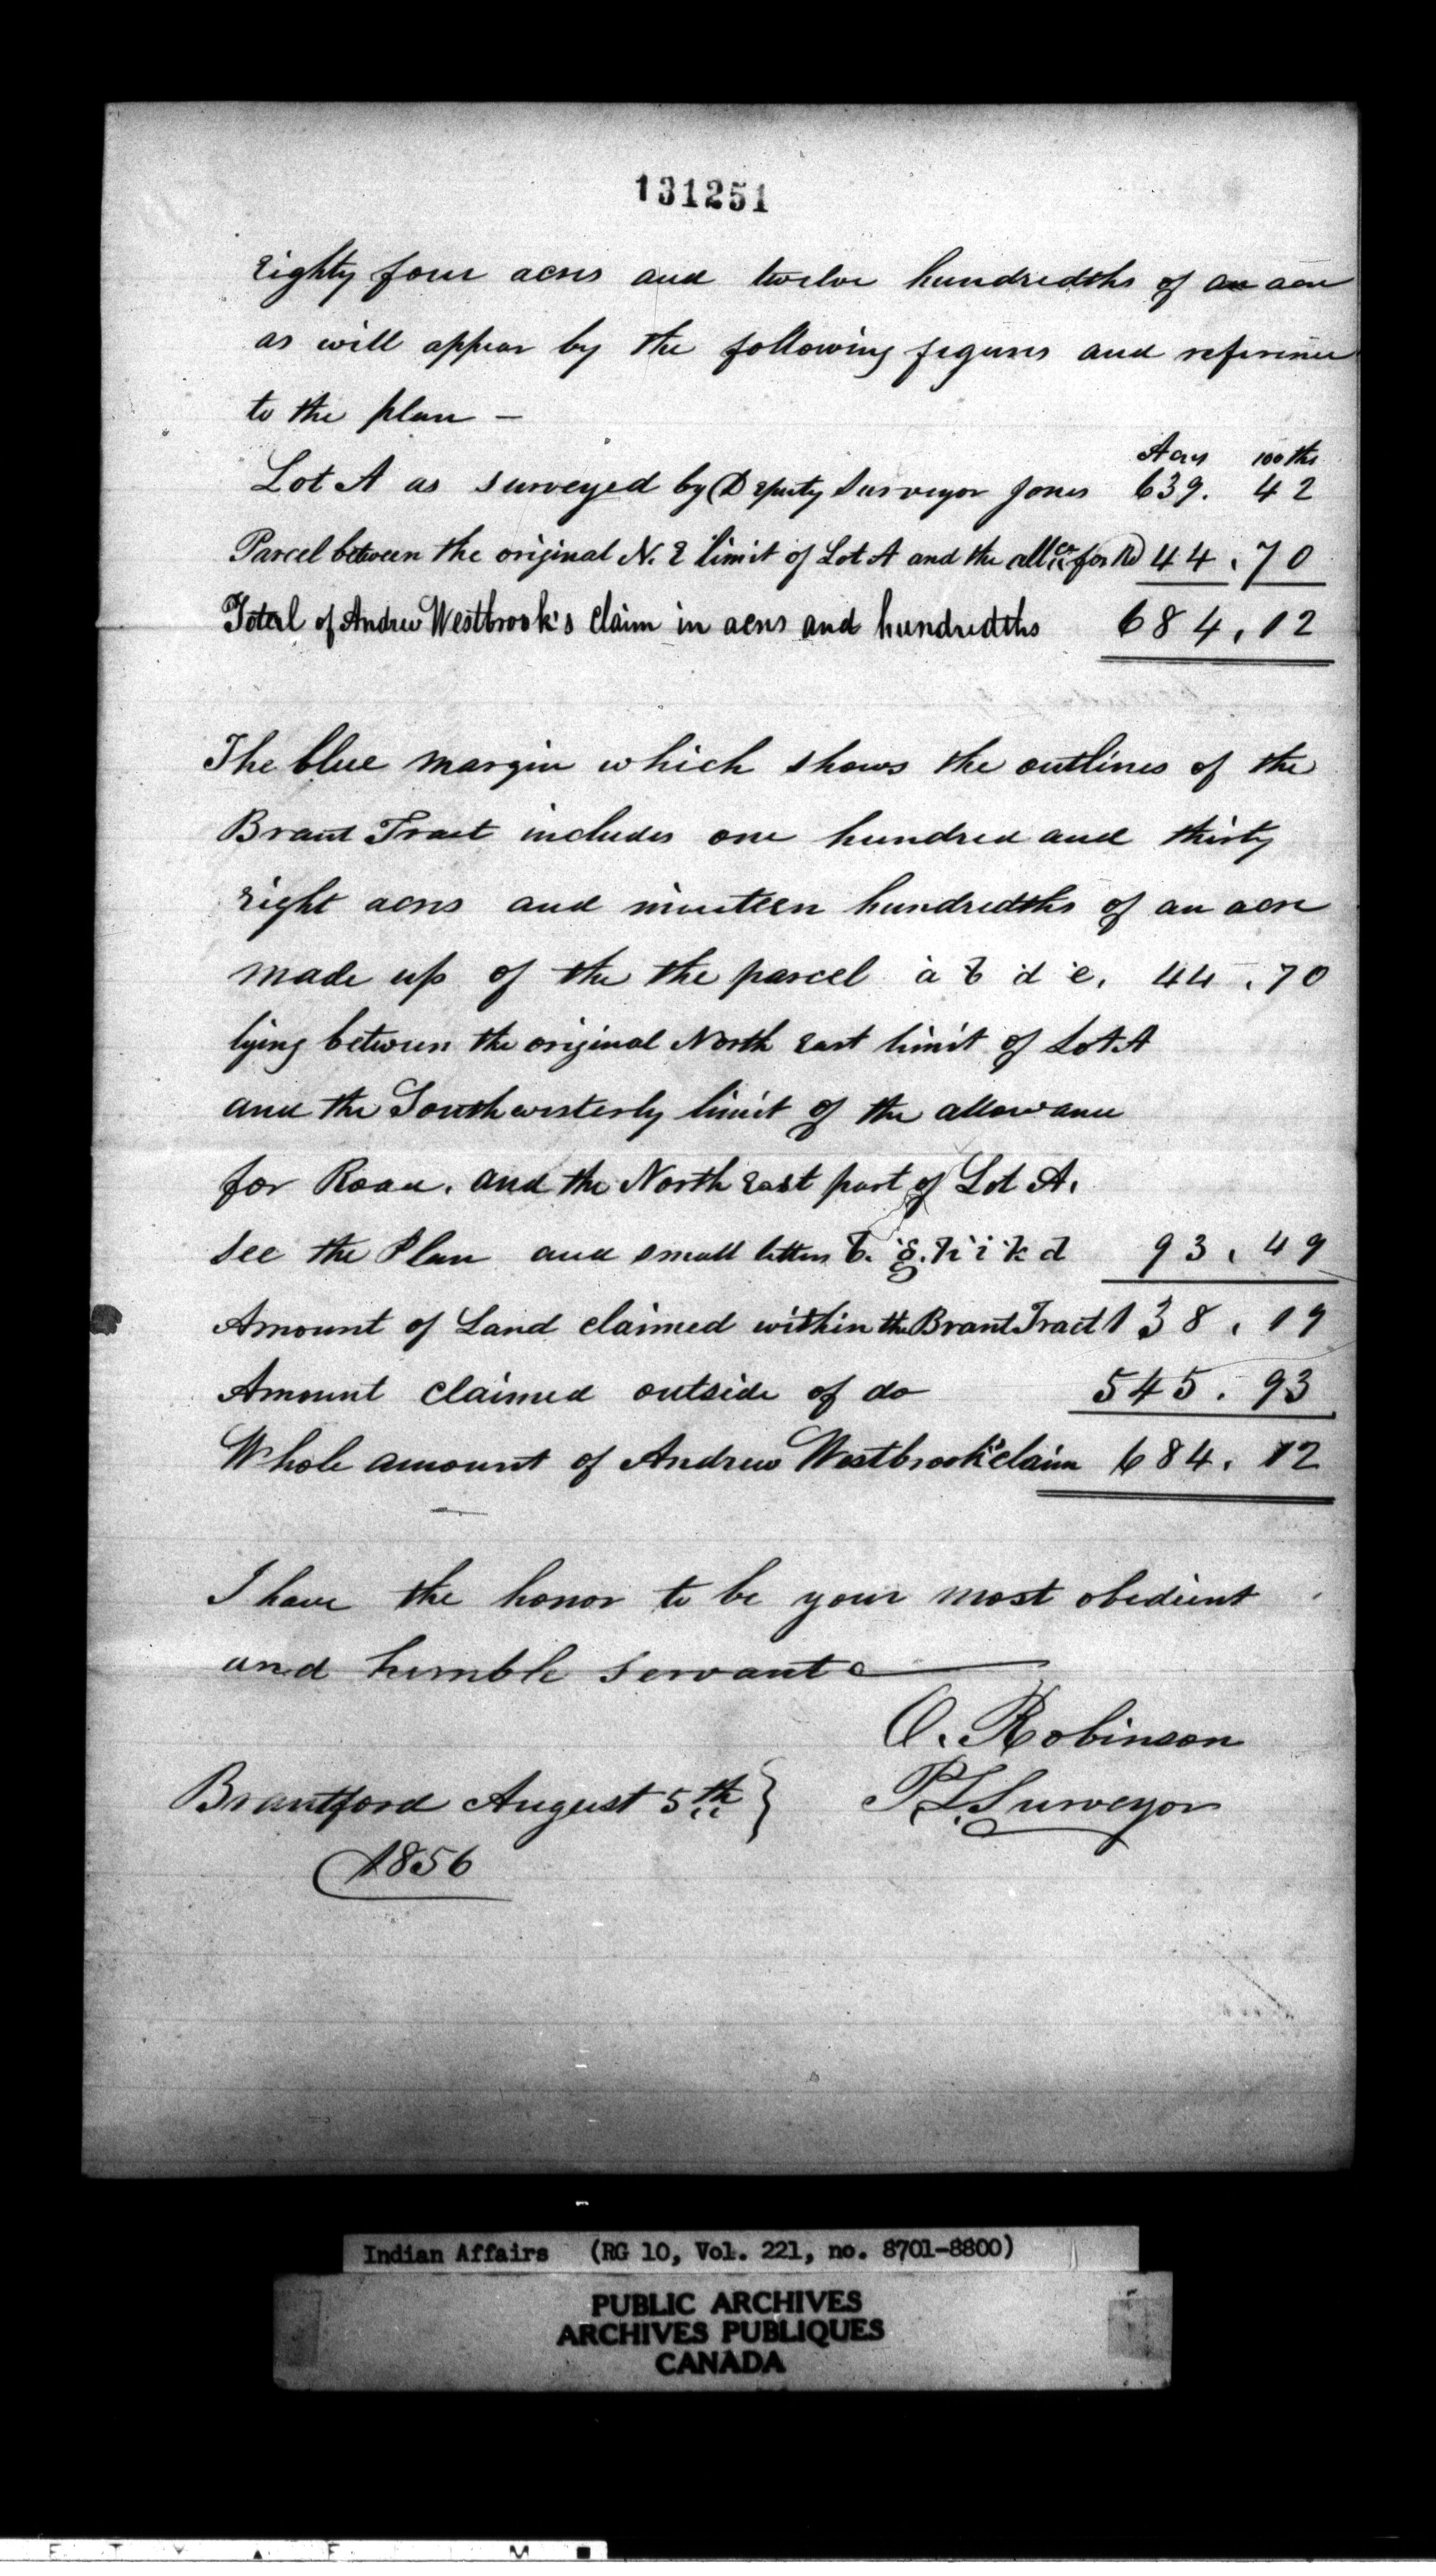 131251
Eighty four acres and twelve hundredths of an acre
as will appear by the following figures and reference
to the plan —
Acres 100ths
Lot A as surveyed by Deputy Surveyor Jones 639. 42
Parcel between the original N. E limit of Lot A and the allce for Rd 44.70
Total of Andrew Westbrook's claim in acres and hundredths 684.12
The blue margin which shows the outlines of the
Brant Tract includes one hundred and thirty
eight acres and nineteen hundredths of an acre
made up of the the parcel a b d e. 44.70
lying between the original North East limit of Lot A
and the Southwesterly limit of the allowance
for Road. and the North East part of Lot A.
see the Plan and small letters b. g. h i k d 93.49
Amount of Land claimed within the Brant Tract 138.19
Amount claimed outside of do 545.93
Whole amount of Andrew Westbrook's claim 684.12
I have the honor to be your most obedient
and humble servant
O. Robinson
Brantford August 5th } P.L. Surveyor
1856
Indian Affairs (RG 10, Vol. 221, no. 8701-8800)
PUBLIC ARCHIVES
ARCHIVES PUBLIQUES
CANADA